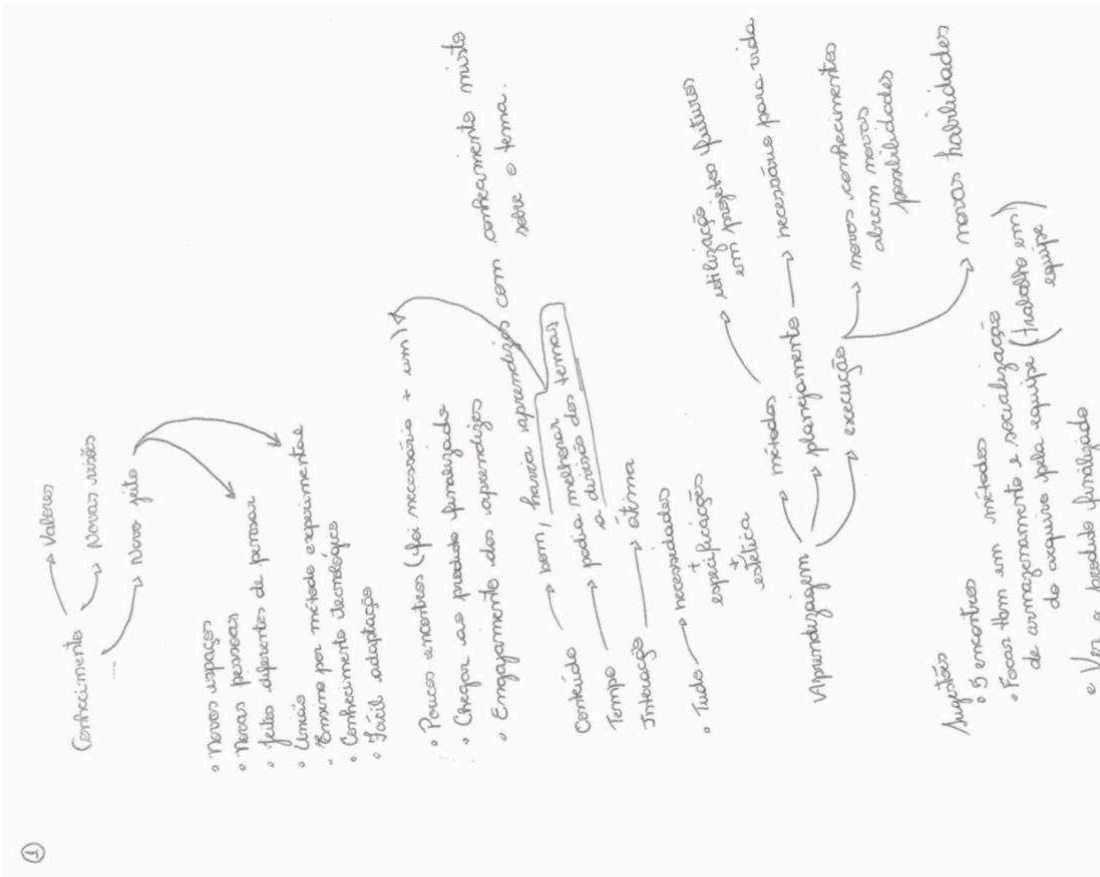 ①
Conhecimento → Valores
→ Novas visões
→ Novo jeito
• novos espaços
• novas pessoas
• jeitos diferentes de pensar
• União
• Ensino por método experimental
• Conhecimento tecnológico
• Fácil adaptação
• Poucos encontros (foi necessário + um)
• Chegar ao produto finalizado
• Engajamento dos aprendizes
Conteúdo → bom, havia aprendizes com conhecimento misto
sobre o tema.
Tempo → podia melhorar
a divisão dos temas
Interação → ótima
• Tudo → necessidades
+
especificações
+
estética
Aprendizagem → métodos → utilização
em projetos futuros
→ planejamento → necessário para vida
→ execução → novos conhecimentos
abrem novas
possibilidades
→ novas habilidades
Sugestões
• 5 encontros
• Focar tbm em métodos
de armazenamento e socialização
do arquivo pela equipe (trabalho em
equipe)
• Ver o produto finalizado